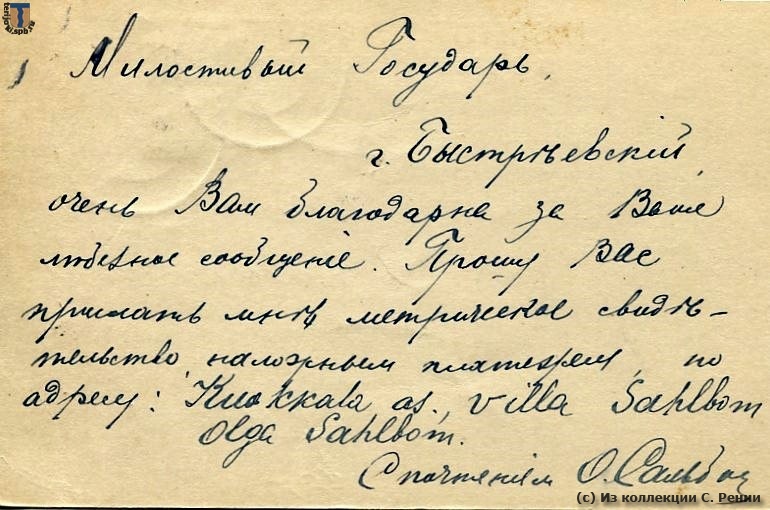 Милостивый Государь,
г. Быстрѣевскій,
очень Вам благодарна за Ваше
любезное сообщеніе. Прошу Вас
прислать мнѣ метрическое свидѣ-
тельство, наложным платежем, по
адресу: Kuokkala as. villa Sahlbom
Olga Sahlbom.
С почтеніем О. Сальбом
(c) Из коллекции С. Ренни
terijoki.spb.ru